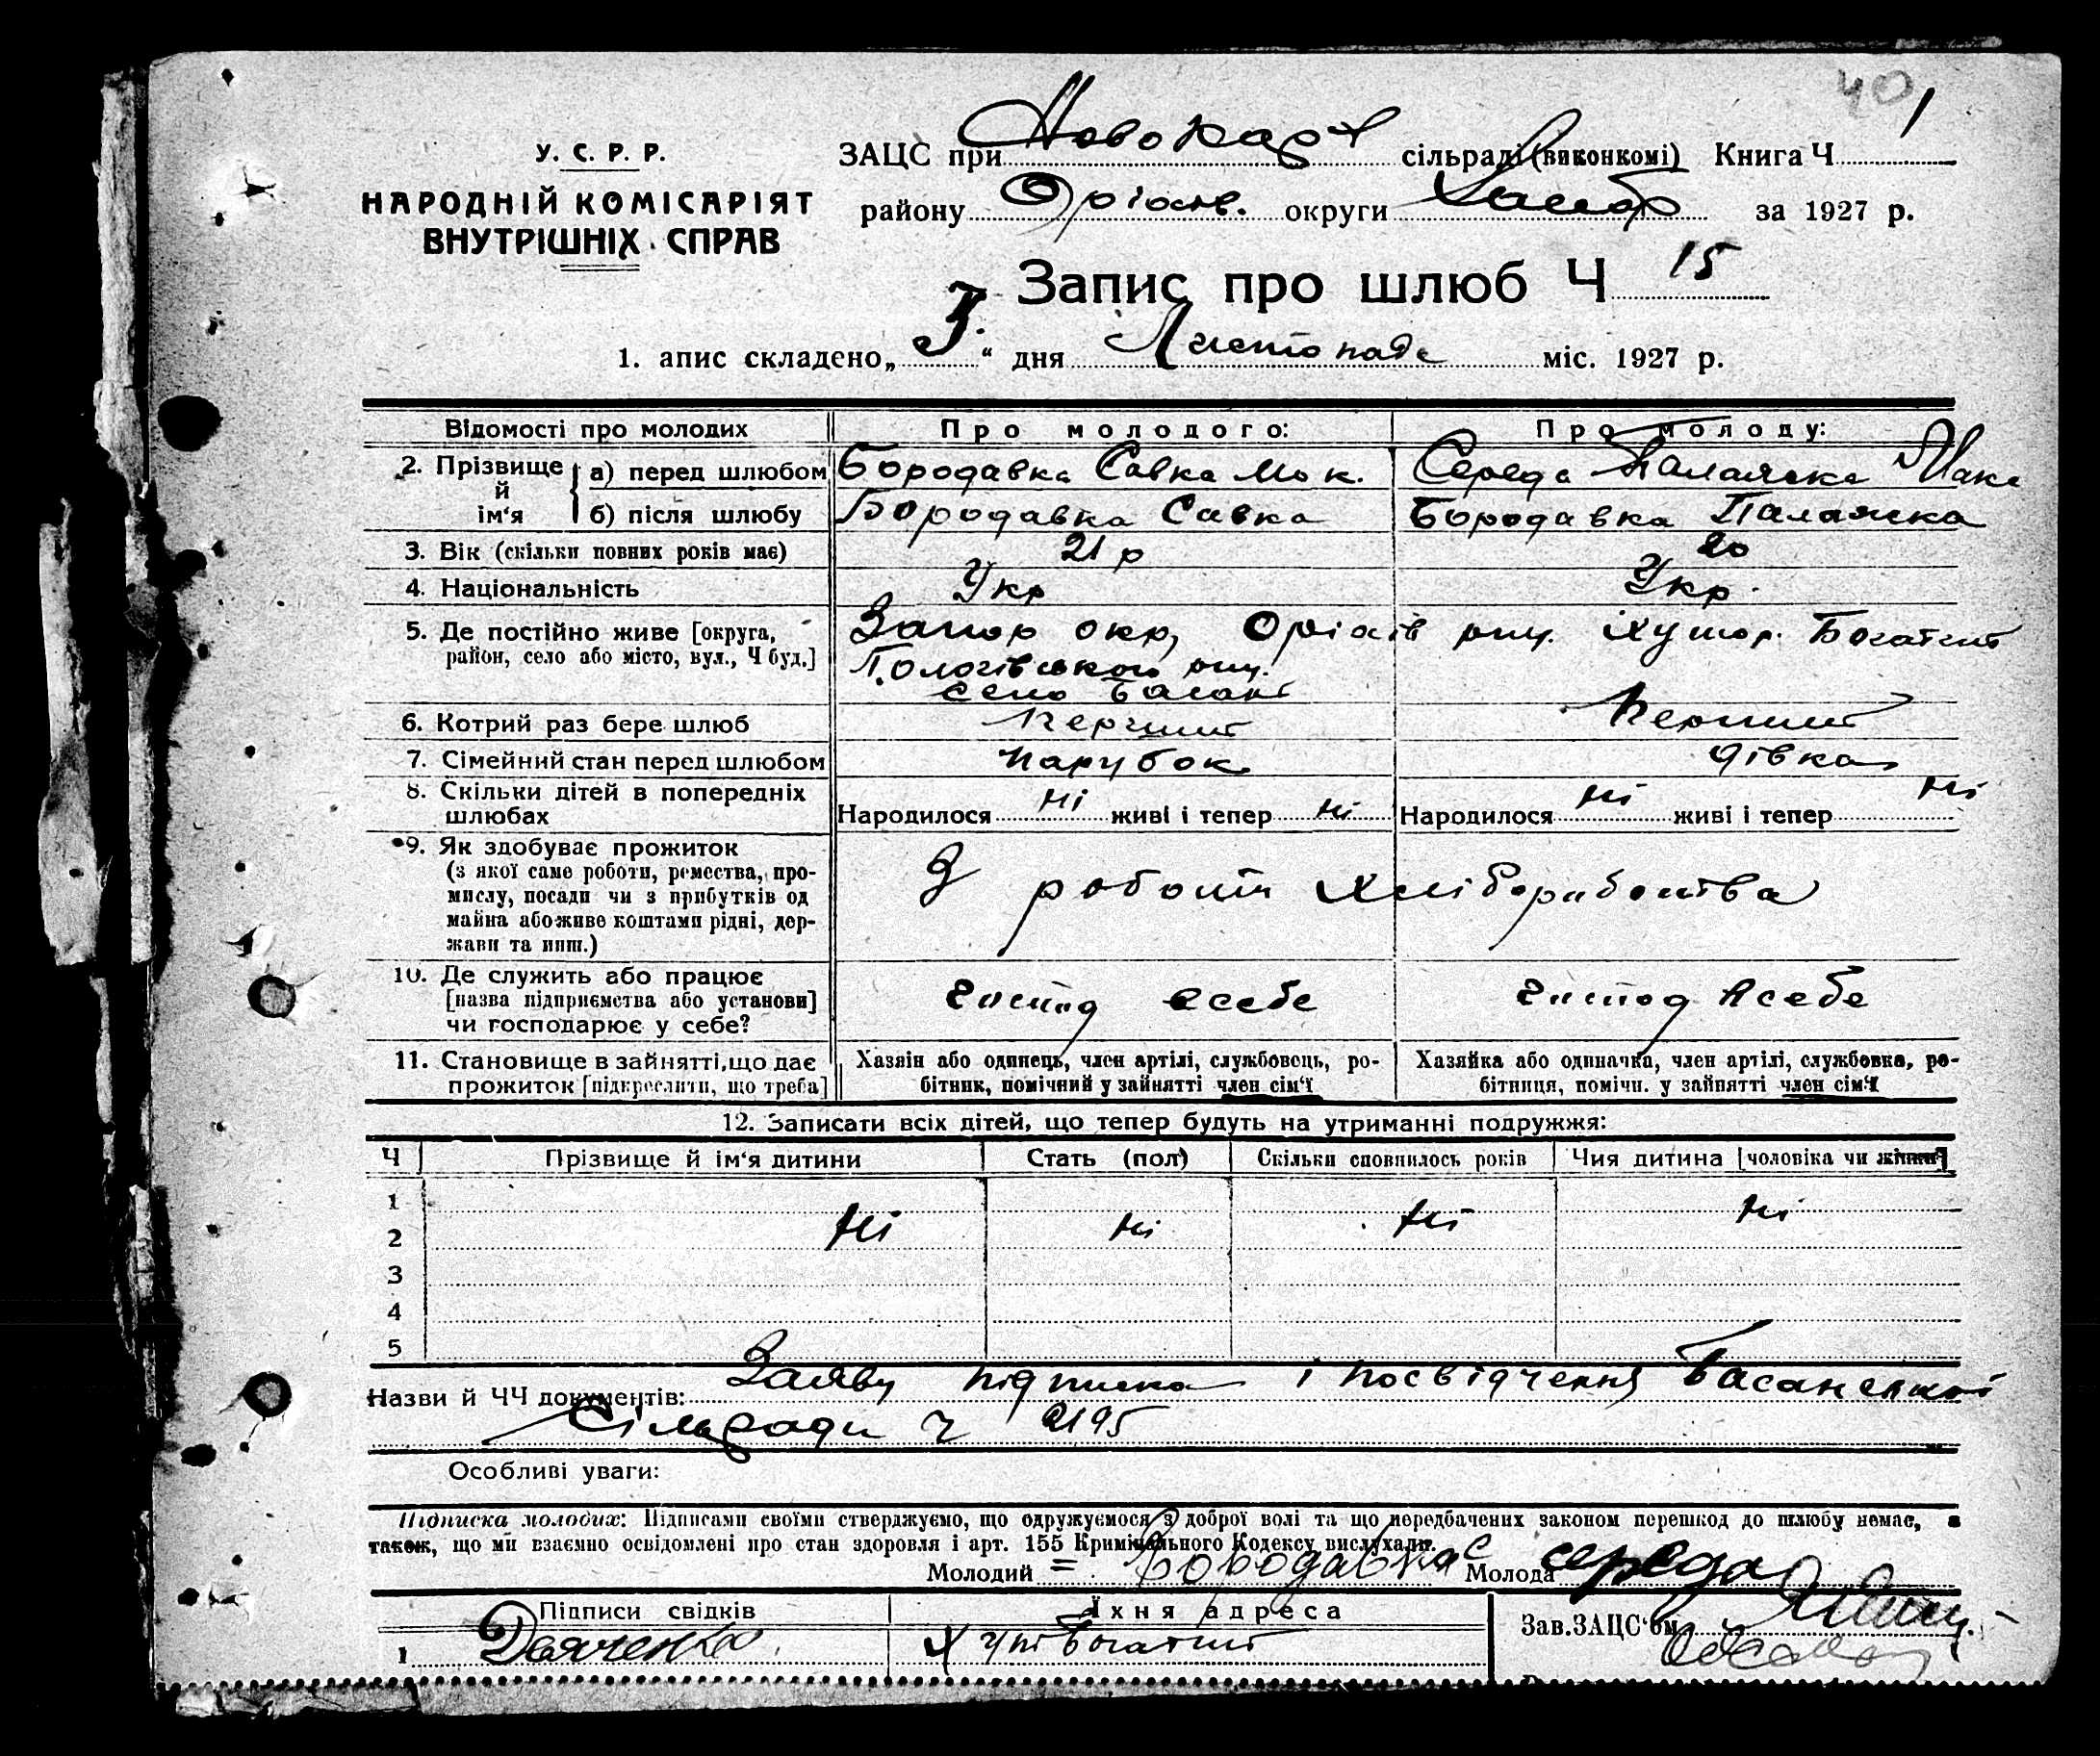 40
У. С. Р. Р.
НАРОДНІЙ КОМІСАРІЯТ
ВНУТРІШНІХ СПРАВ
ЗАЦС при Новокар сільраді (виконкомі) Книга Ч 1
району Оріхів. округи Запор за 1927 р.
Запис про шлюб Ч 15
1. апис складено „ “ дня Листопада міс. 1927 р.
Відомості про молодих Про молодого: Про молоду:
2. Прізвище й ім‘я а) перед шлюбом Бородавка Савка Мок. Середа Палажка Иак
б) після шлюбу Бородавка Савка Бородавка Палажка
3. Вік (скільки повних років має) 21 р 20
4. Національність Укр Укр.
5. Де постійно живе [округа, Запор окр, Оріхів рну. хутор. Богатий
район, село або місто, вул., Ч буд.] Пологівського рну.
село Басань
6. Котрий раз бере шлюб Перший Перший
7. Сімейний стан перед шлюбом парубок дівка
8. Скільки дітей в попередніх
шлюбах Народилося ні живі і тепер ні Народилося ні живі і тепер ні
9. Як здобуває прожиток
(з якої саме роботи, ремества, про-
мислу, посади чи з прибутків од З роботи хліборобства
майна або живе коштами рідні, дер-
жави та инш.)
10. Де служить або працює
[назва підприємства або установи] господ всебе господ всебе
чи господарює у себе?
11. Становище в зайнятті, що дає Хазяін або одинець, член артілі, службовець, ро- Хазяйка або одиначка, член артілі, службовка, ро-
прожиток [підкреслити, що треба] бітник, помічний у зайнятті член сім‘ї бітниця, помічн. у зайнятті член сім‘ї
12. Записати всіх дітей, що тепер будуть на утриманні подружжя:
Ч Прізвище й ім‘я дитини Стать (пол) Скільки сповнилось років Чия дитина [чоловіка чи жінки]
1
2 ні ні ні ні
3
4
5
Назви й ЧЧ документів: Заяву підписка і посвідчення Басанської
Сільради ч 2195
Особливі уваги:
Підписка молодих: Підписами своїми стверджуємо, що одружуємося з доброї волі та що передбачених законом перешкод до шлюбу немає, а
також, що ми взаємно освідомлені про стан здоровля і арт. 155 Кримінального Кодексу вислухали.
Молодий = Бородавка С Молода середа
Підписи свідків Їхня адреса Зав. ЗАЦС‘ом
1 Дяченко Хут Богатий